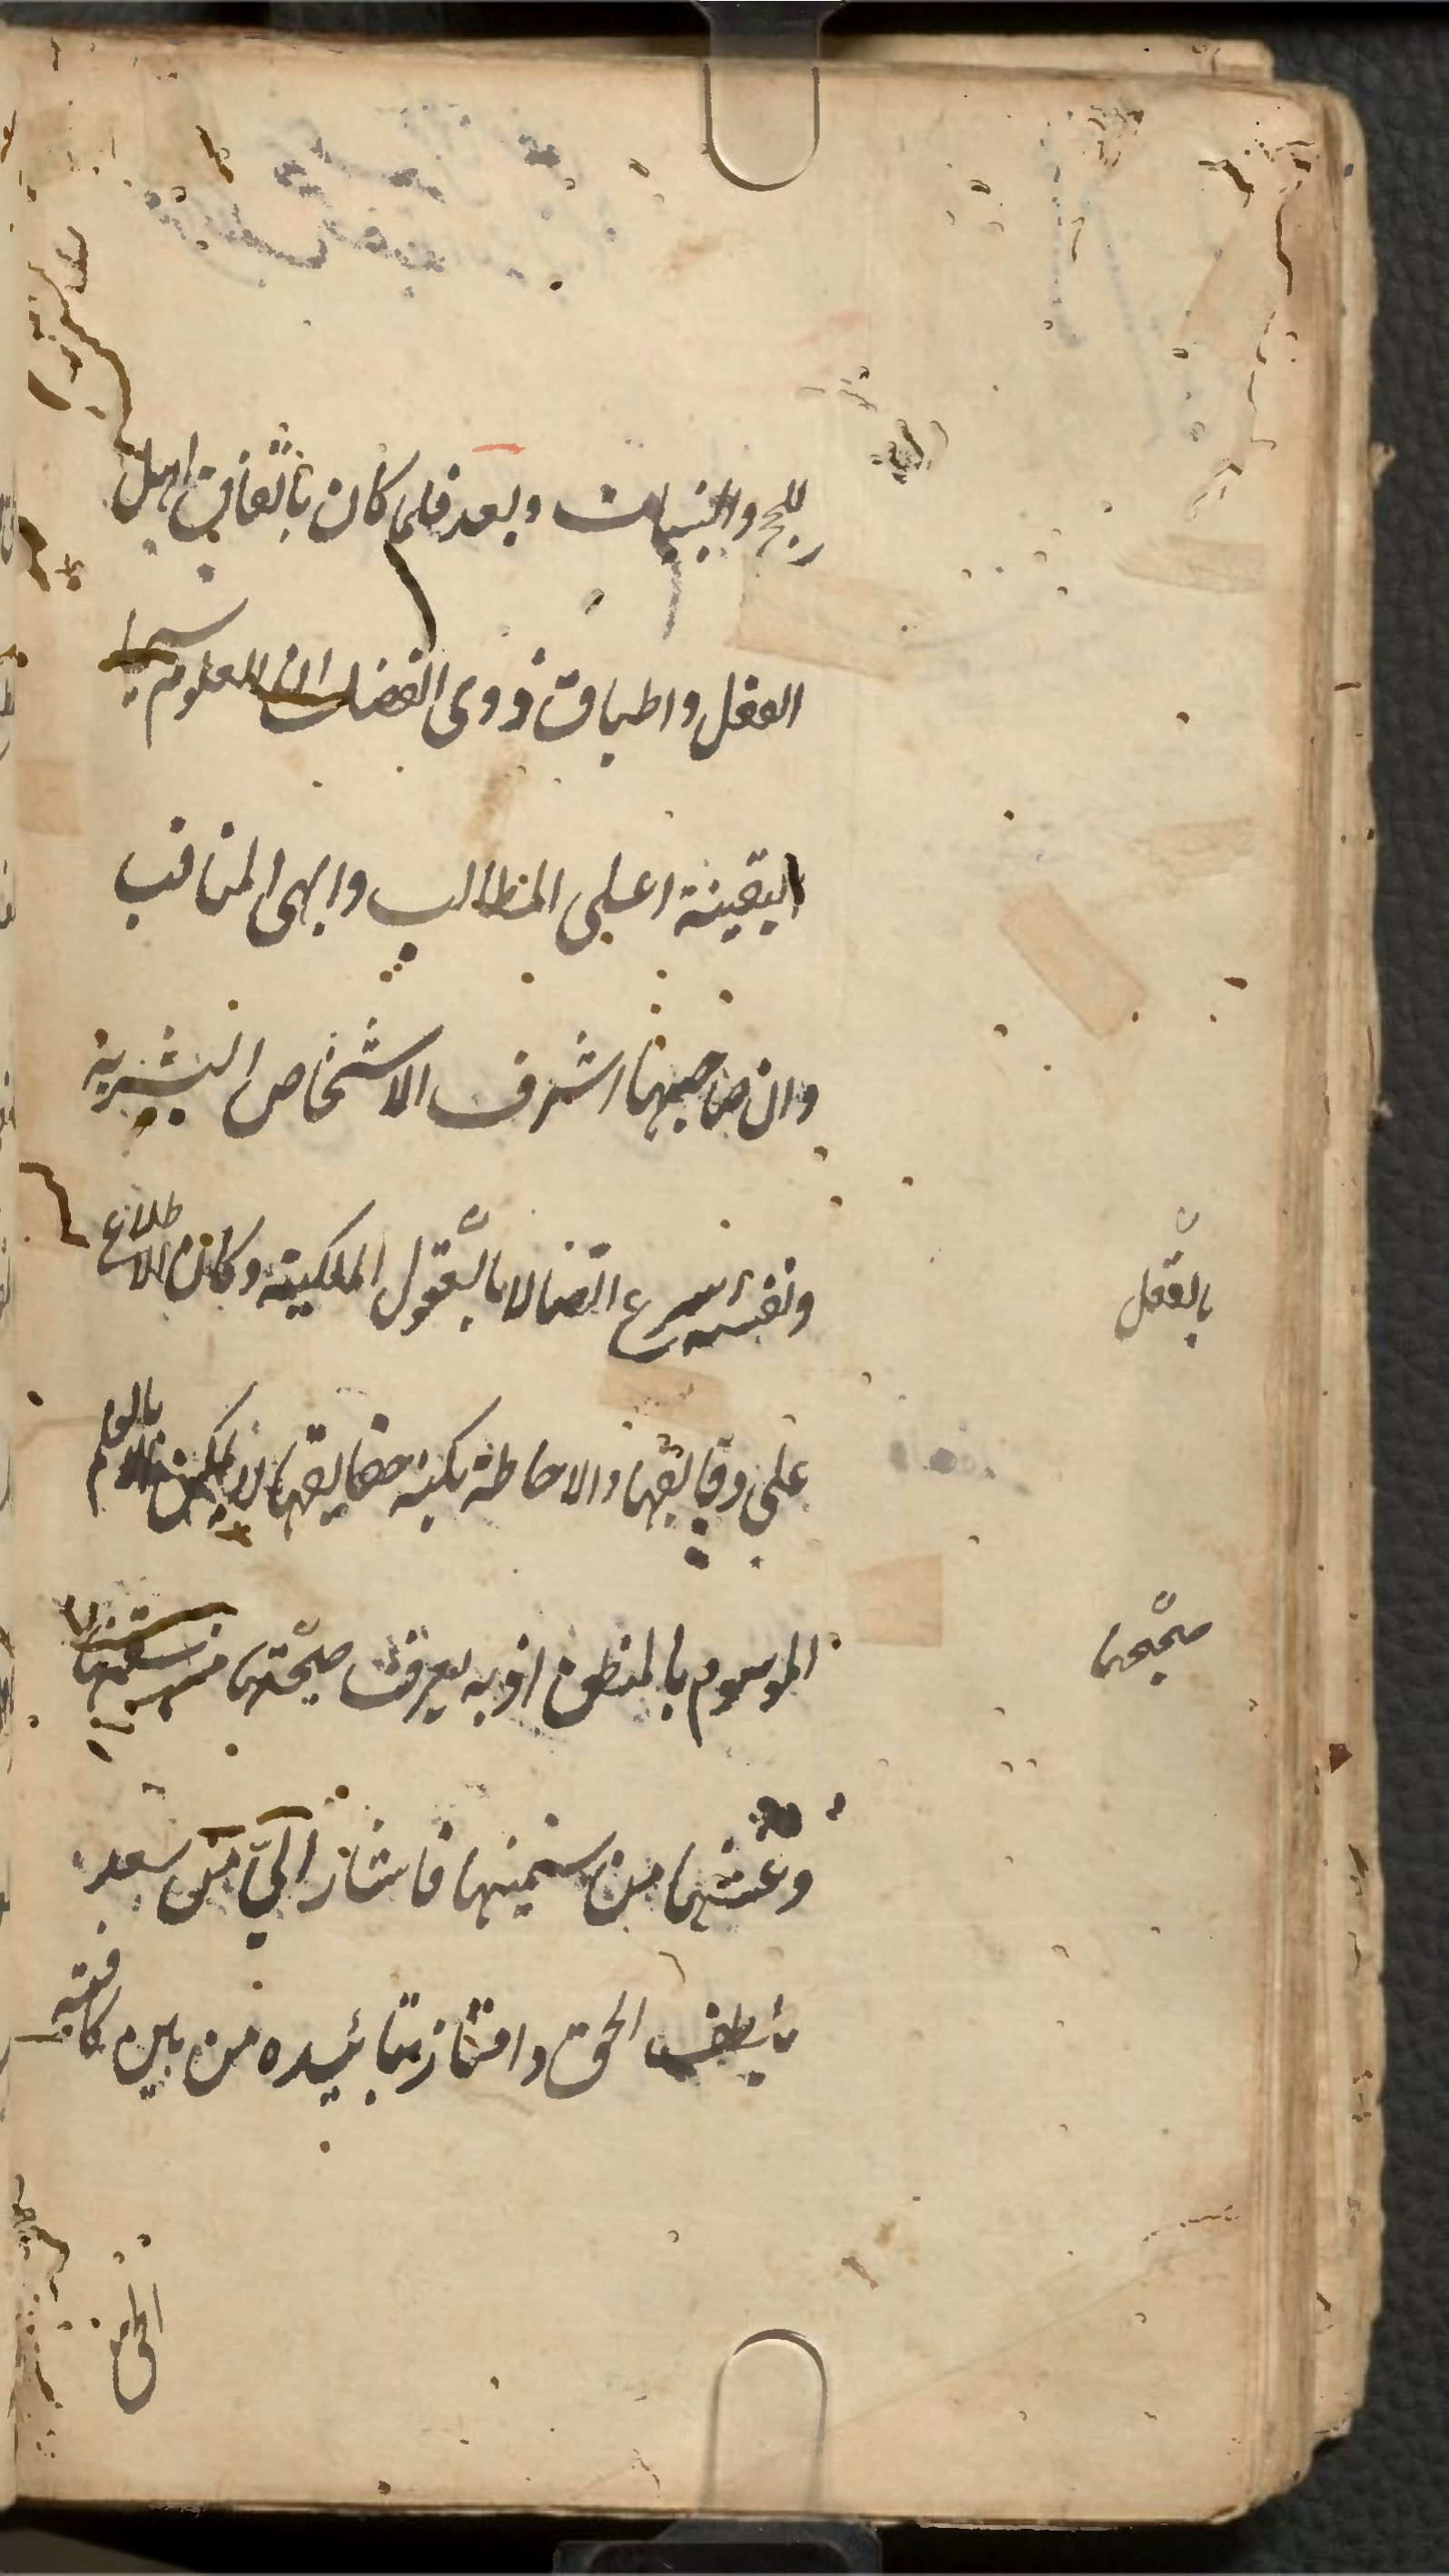 للحج والبينات وبعد فلما كان باتفاق اهل
العقل واطباق ذوى الفضل ان العلوم سيما
اليقينة اعلى المطالب وابهى المناقب
وان صاحبها اشرف الاشخاص البشرية
ونفسه اسرع اتصالا بالعقول الملكية وكان الاطلاع
على دقايقها والاحاطة بكنه حقايقها لا يمكن الا بالعلم
الموسوم بالمنطق اذ به يعرف صحتها من سقمها
وغثها من سمينها فاشار الى من سعد
بلطف الحق وامتاز بتائيده من بين كافة
الخلق
بالعقل
صحتها